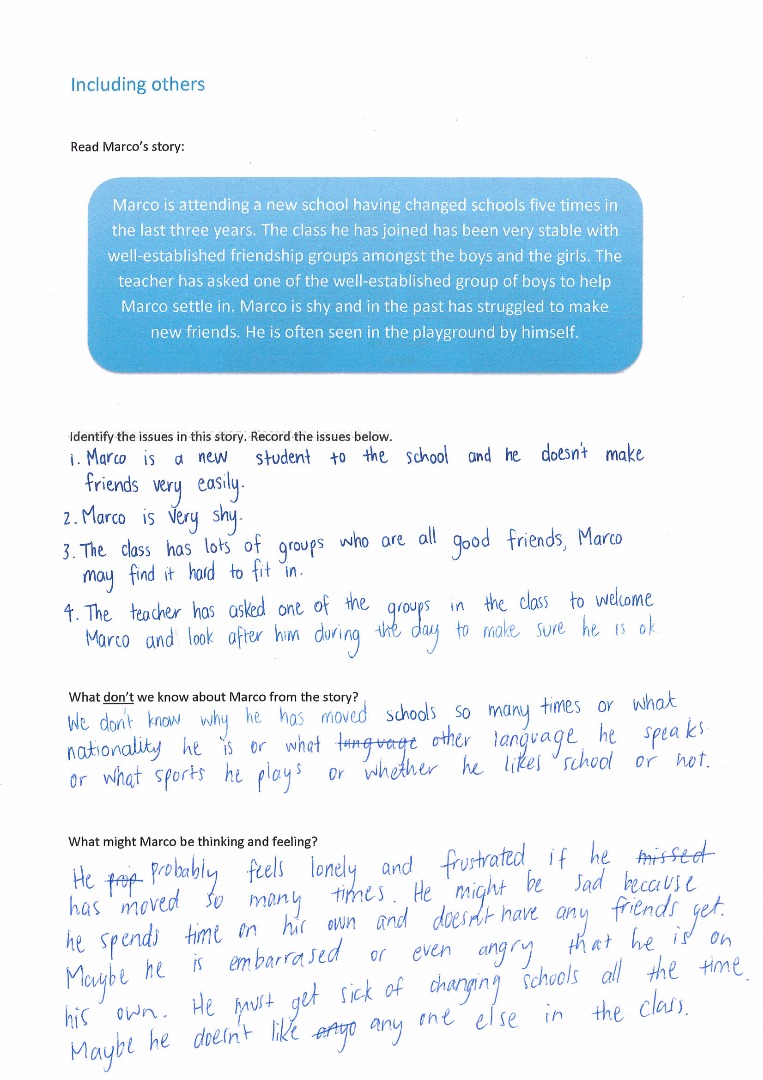 Including others
Read Marco's story:
Marco is attending a new school having changed schools five times in
the last three years. The class he has joined has been very stable with
well-established friendship groups amongst the boys and the girls. The
teacher has asked one of the well-established group of boys to help
Marco settle in. Marco is shy and in the past has struggled to make
new friends. He is often seen in the playground by himself.
Identify the issues in this story. Record the issues below.
1. Marco is a new student to the school and he doesn't make
friends very easily.
2. Marco is very shy.
3. The class has lots of groups who are all good friends, Marco
may find it hard to fit in.
4. The teacher has asked one of the groups in the class to welcome
Marco and look after him during the day to make sure he is ok.
What don't we know about Marco from the story?
We don't know why he has moved schools so many times or what
nationality he is or what language other language he speaks
or what sports he plays or whether he likes school or not.
What might Marco be thinking and feeling?
He prop probably feels lonely and frustrated if he missed
has moved so many times. He might be sad because
he spends time on his own and doesn't have any friends yet.
Maybe he is embarrased or even angry that he is on
his own. He must get sick of changing schools all the time.
Maybe he doesn't like anyo any one else in the class.